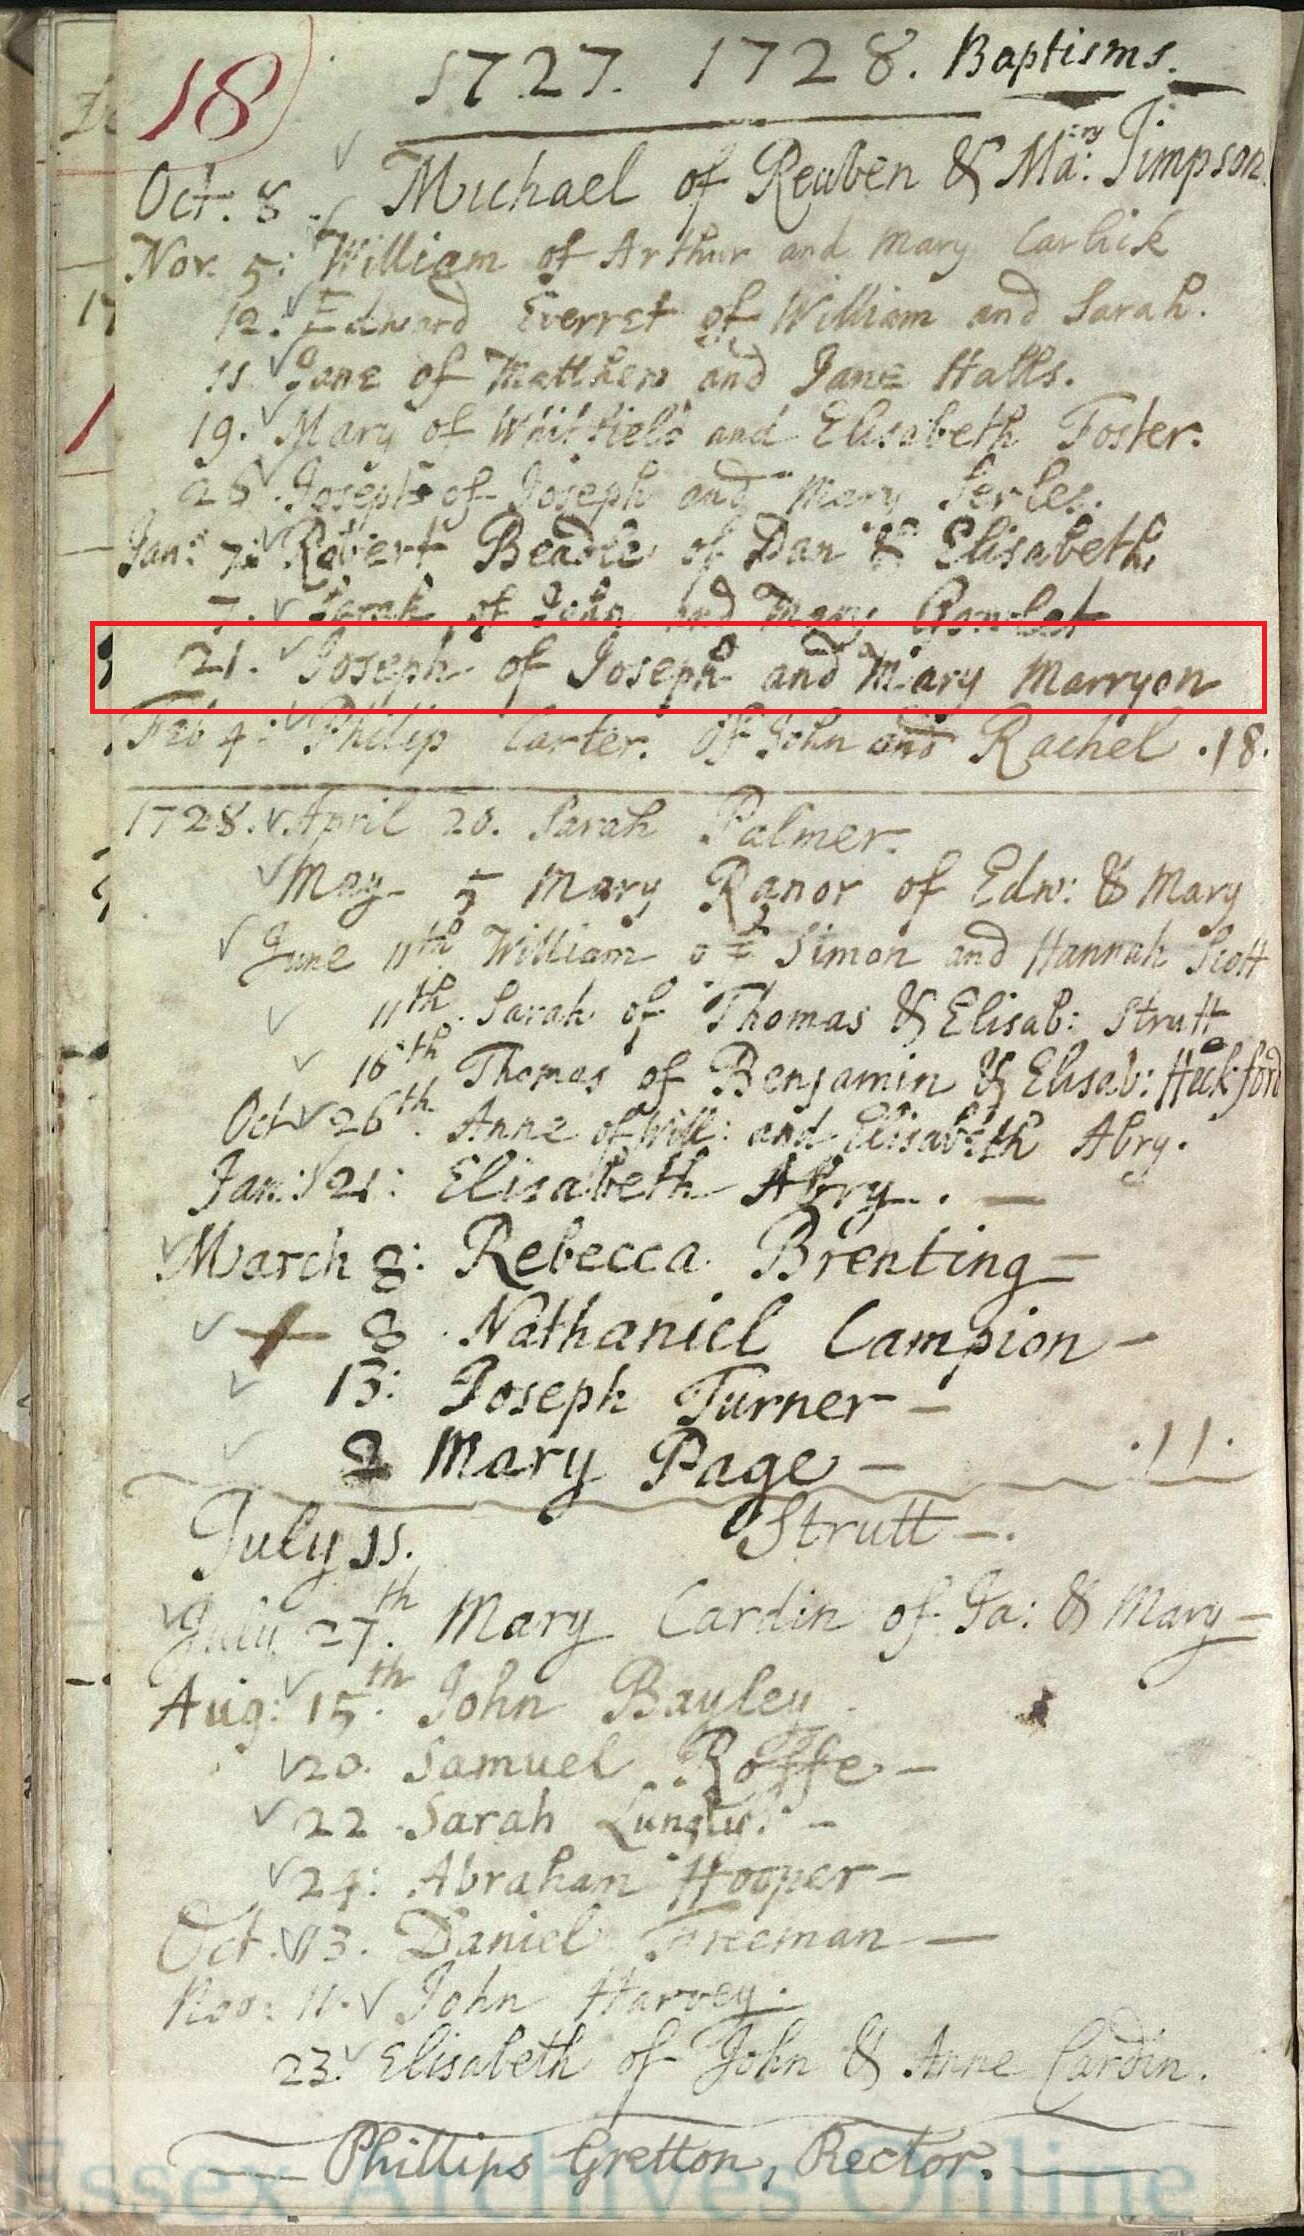 18
1727. 1728. Baptisms.
Oct. 8 Michael of Reuben & Ma:ry Timpson.
Nov. 5: William of Arthur and Mary Carlick
12. Edward Everret of William and Sarah.
Jane of Matthew and Jane Halls.
19. Mary of Whitfield and Elisabeth Foster.
26. Joseph of Joseph and Mary
Jan: 7: Robert Beadle of Dan & Elisabeth.
7. Sarah of John and Mary
21. Joseph of Joseph and Mary Marryon
Feb 4: Philip Carter. of John and Rachel .18.
1728. April 20. Sarah Palmer.
May 5 Mary Ranor of Edw: & Mary
June 11th William of Simon and Hannah Scott
11th. Sarah of Thomas & Elisab: Strutt
16th Thomas of Benjamin & Elisab: Heckford
Oct 26th. Anne of Will: and Elisabeth Abry.
Jan: 21: Elisabeth Abry. —
March 8: Rebecca Brenting —
8 Nathaniel Campion —
13: Joseph Turner —
2 Mary Page — .11.
July 11. Strutt —.
July 27th. Mary Cardin of Ja: & Mary —
Aug: 15th. John Bayley
20. Samuel Roffe —
22 Sarah —
24: Abraham Hooper —
Oct. 13. Daniel Freeman —
Nov: 11. John Harvey.
23. Elisabeth of John & Anne Cardin.
Phillips Gretton, Rector.
Essex Archives Online